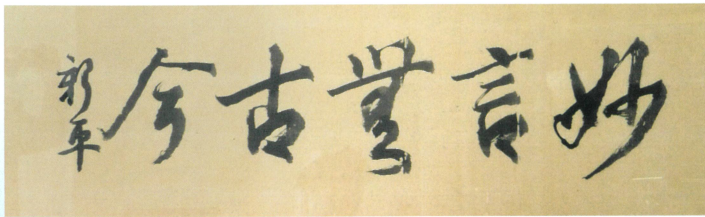 妙言無古今
新平